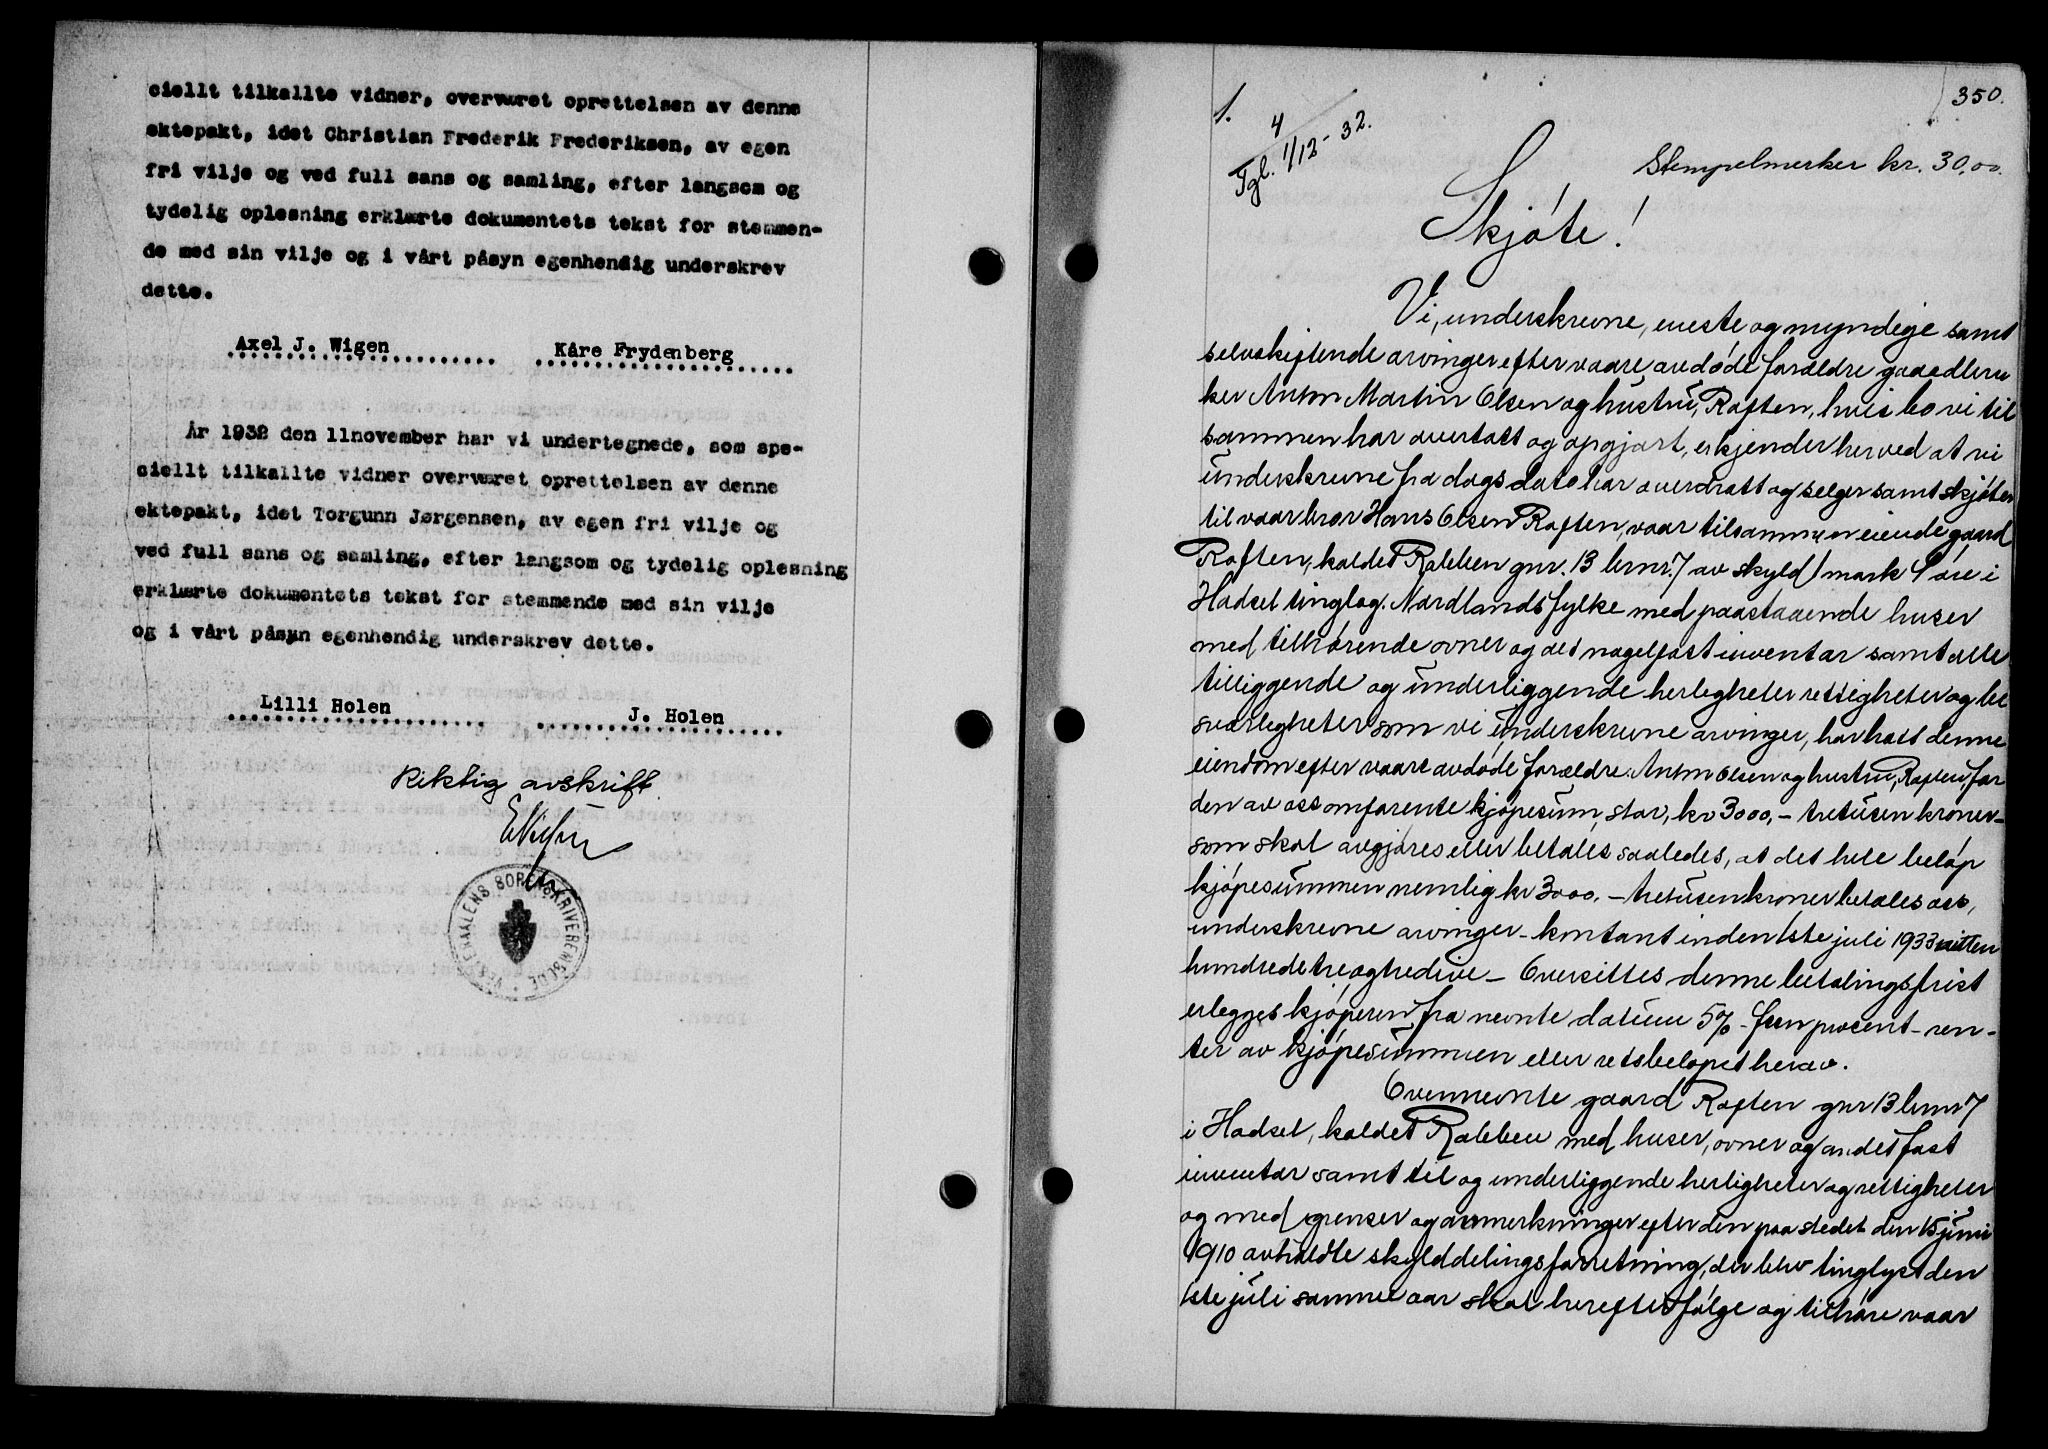 ciellt tilkallte vidner, overværet oprettelsen av denne
ektepakt, idet Christian Frederik Frederiksen, av egen
fri vilje og ved full sans og samling, efter langsom og
tydelig oplesning erklærte dokumentets tekst for stemmen-
de med sin vilje og i vårt påsyn egenhendig underskrev
dette.
Axel J. Wigen Kåre Frydenberg
År 1932 den 11november har vi undertegnede, som spe-
ciellt tilkallte vidner overværet oprettelsen av denne
ektepakt, idet Torgunn Jørgensen, av egen fri vilje og
ved full sans og samling, efter langsom og tydelig oplesning
erklærte dokumentets tekst for stemmende med sin vilje
og i vårt påsyn egenhendig underskrev dette.
Lilli Holen J. Holen
Riktig avskrift.
VESTERAALENS SORENSKRIVEREMBEDE
350.
1.
4
Tgl. 1/12-32.
Stempelmerker kr. 30,00.
Skjøte!
Vi, underskrevne, eneste og myndige samt
selvskiftende arvinger efter vaare avdøde forældre gaardbru
ker Anton Martin Olsen og hustru, Raften, hvis bo vi til
sammen har overtatt og opgjort, erkjender herved at vi
underskrevne fra dags dato har overdratt og selger samt skjøter
til vaar bror Hans Olsen Raften, vaar tilsammen eiende gaard
Raften, kaldet Rabben gnr. 13 brnr. 7 av skyld 1 mark 4 øre i
Hadsel tinglag. Nordlands fylke med paastaaende huser
med tilhørende ovner og det nagelfast inventar samt alle
tilliggende og underliggende herligheter rettigheter og be
sværligheter som vi underskrevne arvinger, har hatt denne
eiendom efter vaare avdøde forældre Anton Olsen og hustru, Raften, for
den av oss omforente kjøpesum, stor, kr 3000,- tretusen kroner-
som skal avgjøres eller betales saaledes, at det hele beløp
kjøpesummen nemlig kr 3000.- tretusen kroner betales oss,
underskrevne arvinger - kontant inden 1ste juli 1933 nitten
hundrede treogtredive - Oversittes denne betalingsfrist
erlegges kjøperen fra nevnte datum 5% - fem procent - ren-
ter av kjøpesummen eller restbeløpet herav.
Ovennevnte gaard Raften gnr 13 brnr 7
i Hadsel, kaldet Rabben med huser, ovner og andet fast
inventar samt til og underliggende herligheter og rettigheter
og med grenser og anmerkninger efter den paa stedet den 15 juni
1910 avholdte skylddelingsforretning, der blev tinglyst den
1ste juli samme aar skal herefter følge og tilhøre vaar